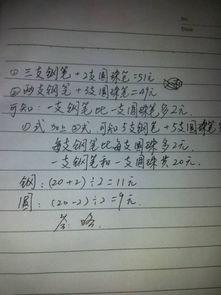 ① 三支钢笔+2支圆珠笔=51元
② 两支钢笔+3支圆珠笔=49元
可知:一支钢笔比一支圆珠笔多2元.
①式加上②式,可知5支钢笔+5支圆珠笔
每支钢笔比每支圆珠笔多2元.
一支钢笔和一支圆珠笔共20元.
钢:(20+2)÷2=11元
圆:(20-2)÷2=9元.
答 略